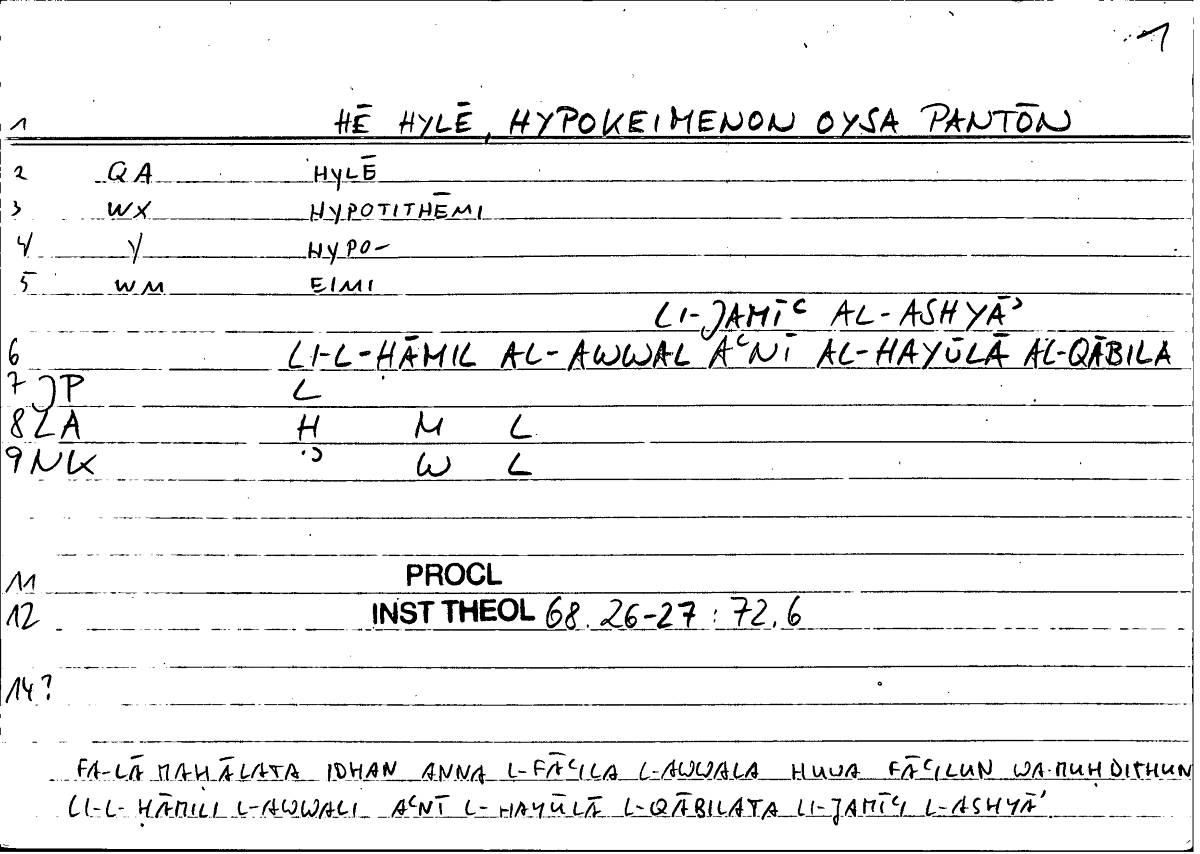 1
1 HĒ HYLĒ, HYPOKEIMENON OYSA PANTŌN
2 QA HYLĒ
3 WX HYPOTITHĒMI
4 Y HYPO-
5 WM EIMI
LI-JAMĪʿ AL-ASHYĀʾ
6 LI-L-ḤĀMIL AL-AWWAL AʿNĪ AL-HAYŪLĀ AL-QĀBILA
7 JP L
8 LA Ḥ M L
9 NK ʾ W L
11 PROCL
12 INST THEOL 68.26-27: 72,6
14?
FA-LĀ MAḤĀLATA IDHAN ANNA L-FĀʿILA L-AWWALA HUWA FĀʿILUN WA-MUḤDITHUN
LI-L-ḤĀMILI L-AWWALI AʿNĪ L-HAYŪLĀ L-QĀBILATA LI-JAMĪʿI L-ASHYĀʾ